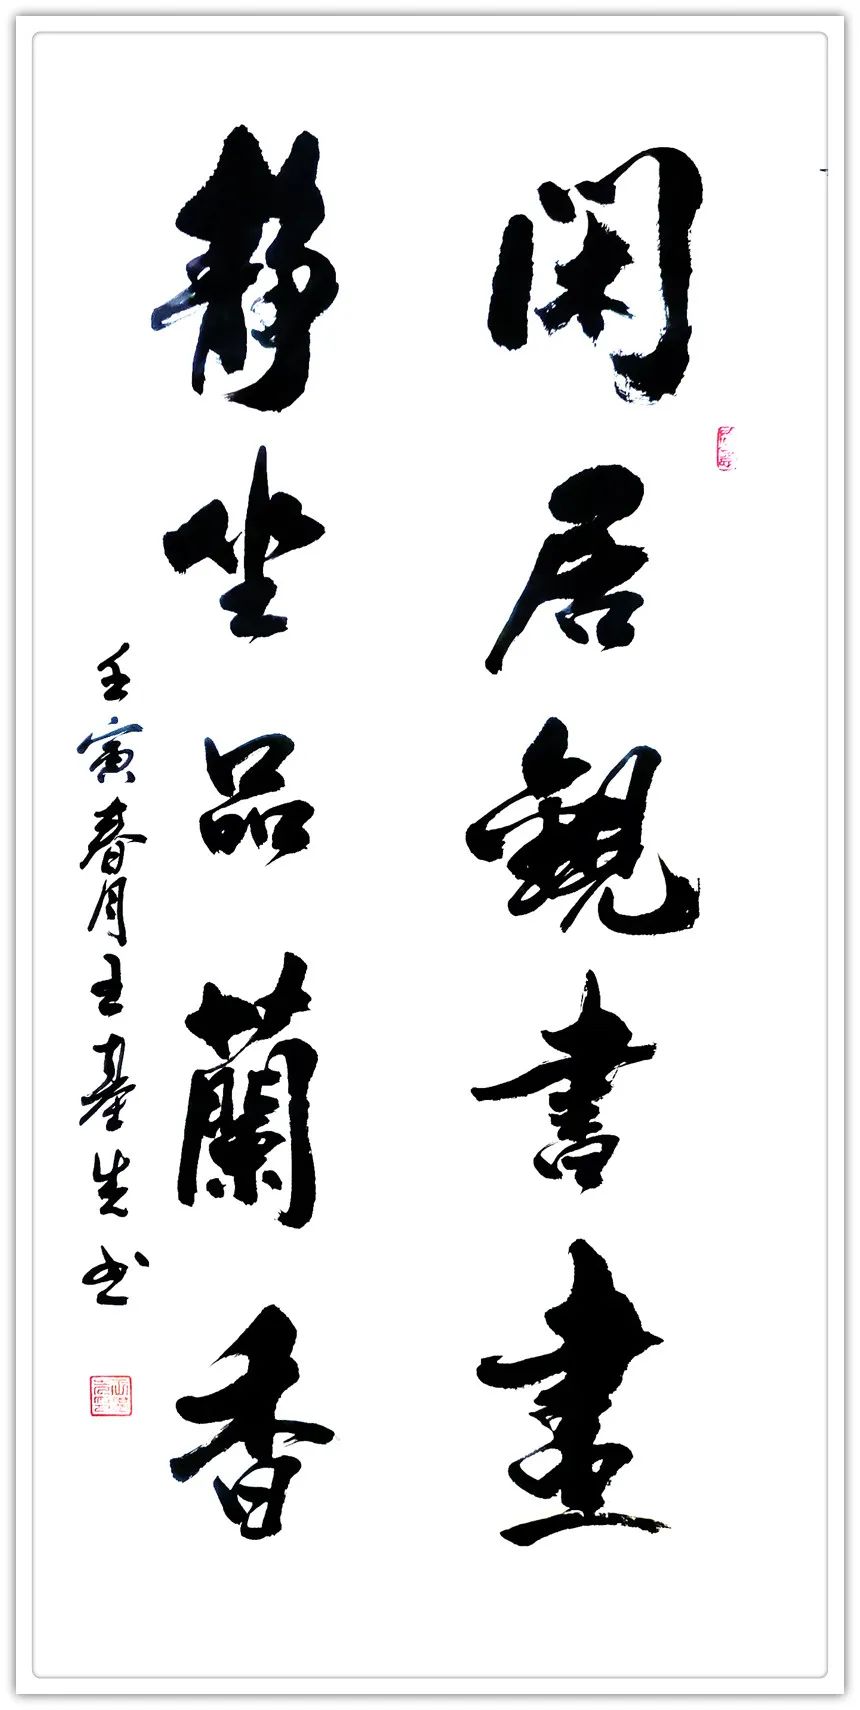 閑居觀書畫
静坐品蘭香
壬寅春月王基先书